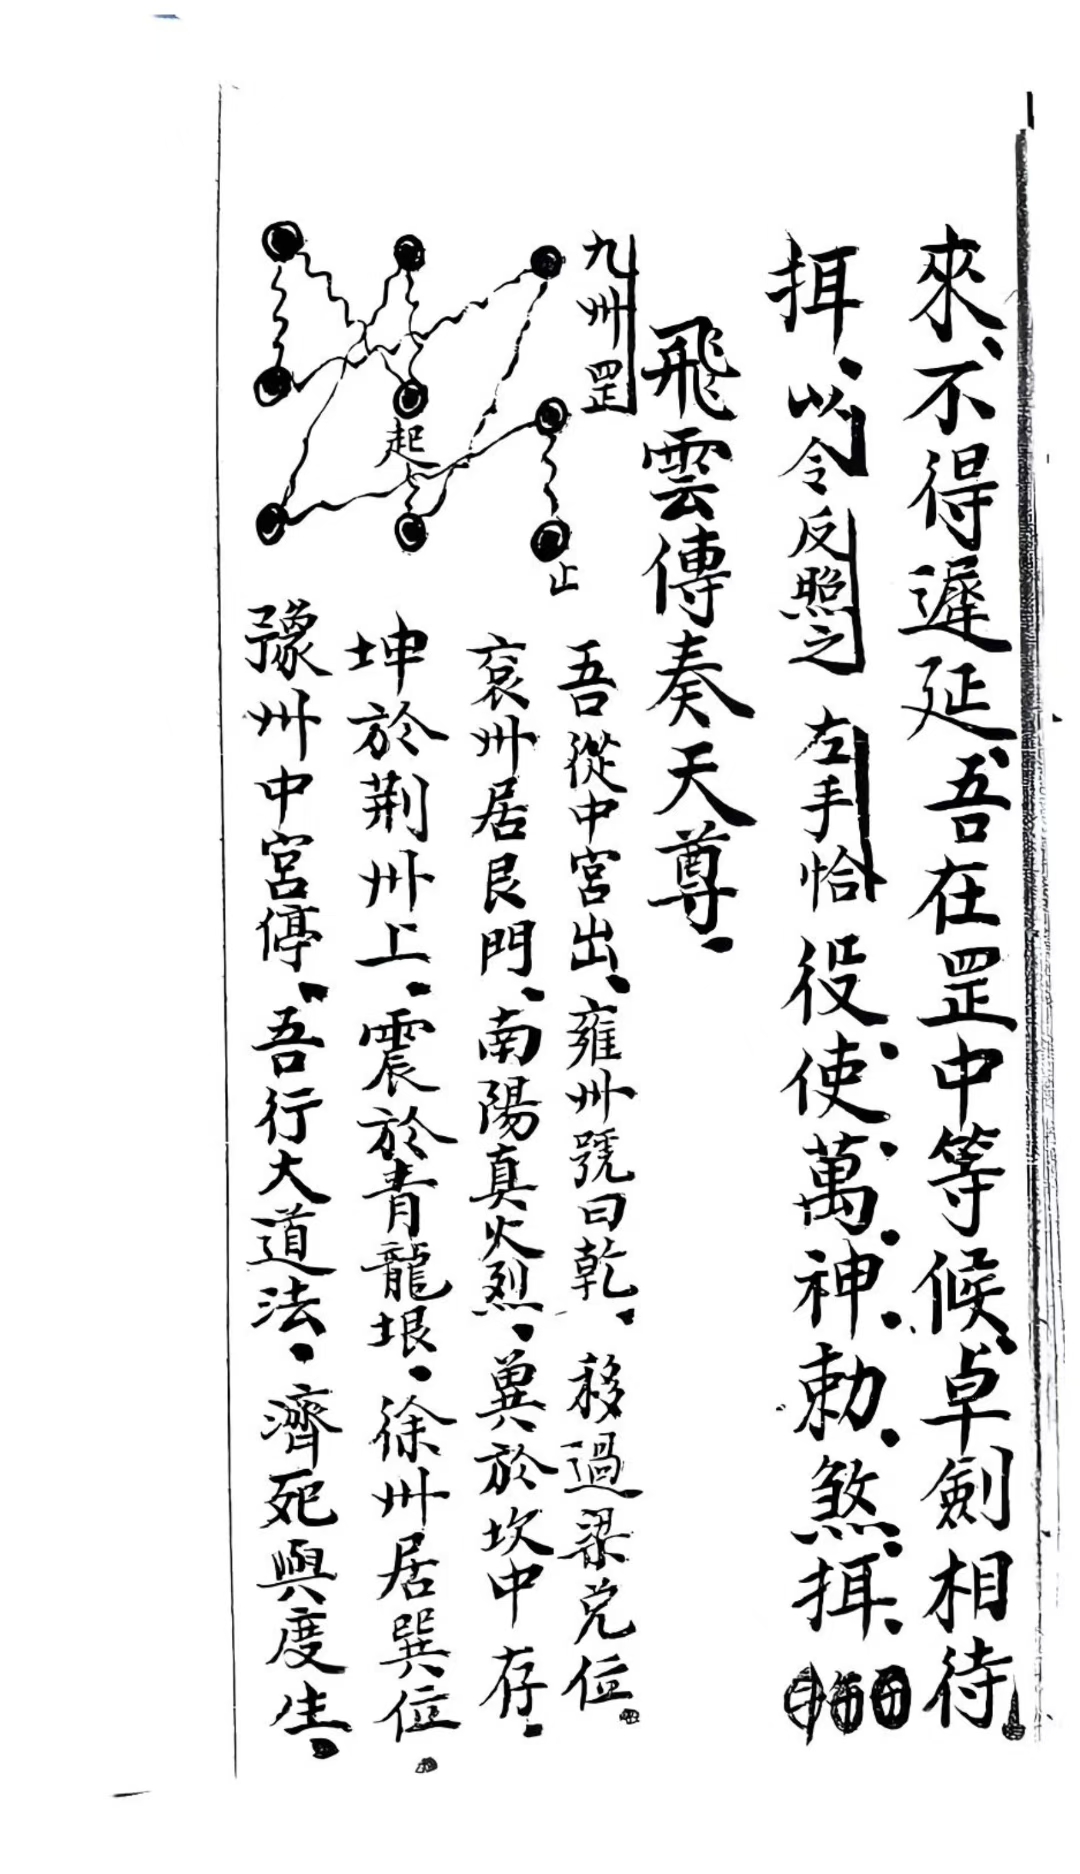 來、不得遲延、吾在罡中等候、卓劍相待
挕、以令反照之 左手恰 役使萬神、勅煞挕、
飛雲傳奏天尊、
九州罡
起
止
吾從中宮出、雍州號曰乾、移過梁兌位
衮州居艮門、南陽真火烈、兾於坎中存、
坤於荆州上、震於青龍垠、徐州居巽位
豫州中宮停、吾行大道法、濟死與度生、